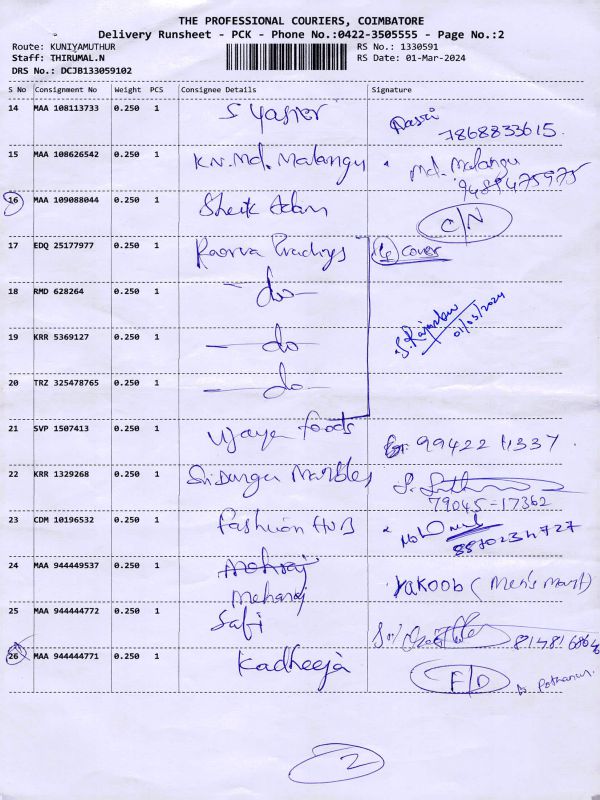 THE PROFESSIONAL COURIERS, COIMBATORE
Delivery Runsheet - PCK - Phone No.:0422-3505555 - Page No.:2
Route: KUNIYAMUTHUR
RS No.: 1330591
Staff: THIRUMAL.N
RS Date: 01-Mar-2024
DRS No.: DCJB133059102
S No Consignment No Weight PCS Consignee Details Signature
14 MAA 108113733 0.250 1 S Yasier
7868833615.
15 MAA 108626542 0.250 1 K.N.Md. Malangu Md. Malangu
9489475975
16 MAA 109088044 0.250 1 Sheik Adam C/N
17 EDQ 25177977 0.250 1 cover
18 RMD 628264 0.250 1 -do-
19 KRR 5369127 0.250 1 -do-
01/03/2024
20 TRZ 325478765 0.250 1 -do-
21 SVP 1507413 0.250 1 Vijaya foods 99422 11337.
22 KRR 1329268 0.250 1 Sri Durga Marbles
79045-17362
23 CDM 10196532 0.250 1 Fashion HUB
8870234727
24 MAA 944449537 0.250 1 Mehraj Yakoob (Men's Mart)
Meharaj
25 MAA 944444772 0.250 1 Safi
26 MAA 944444771 0.250 1 Kadheeja F/D
2